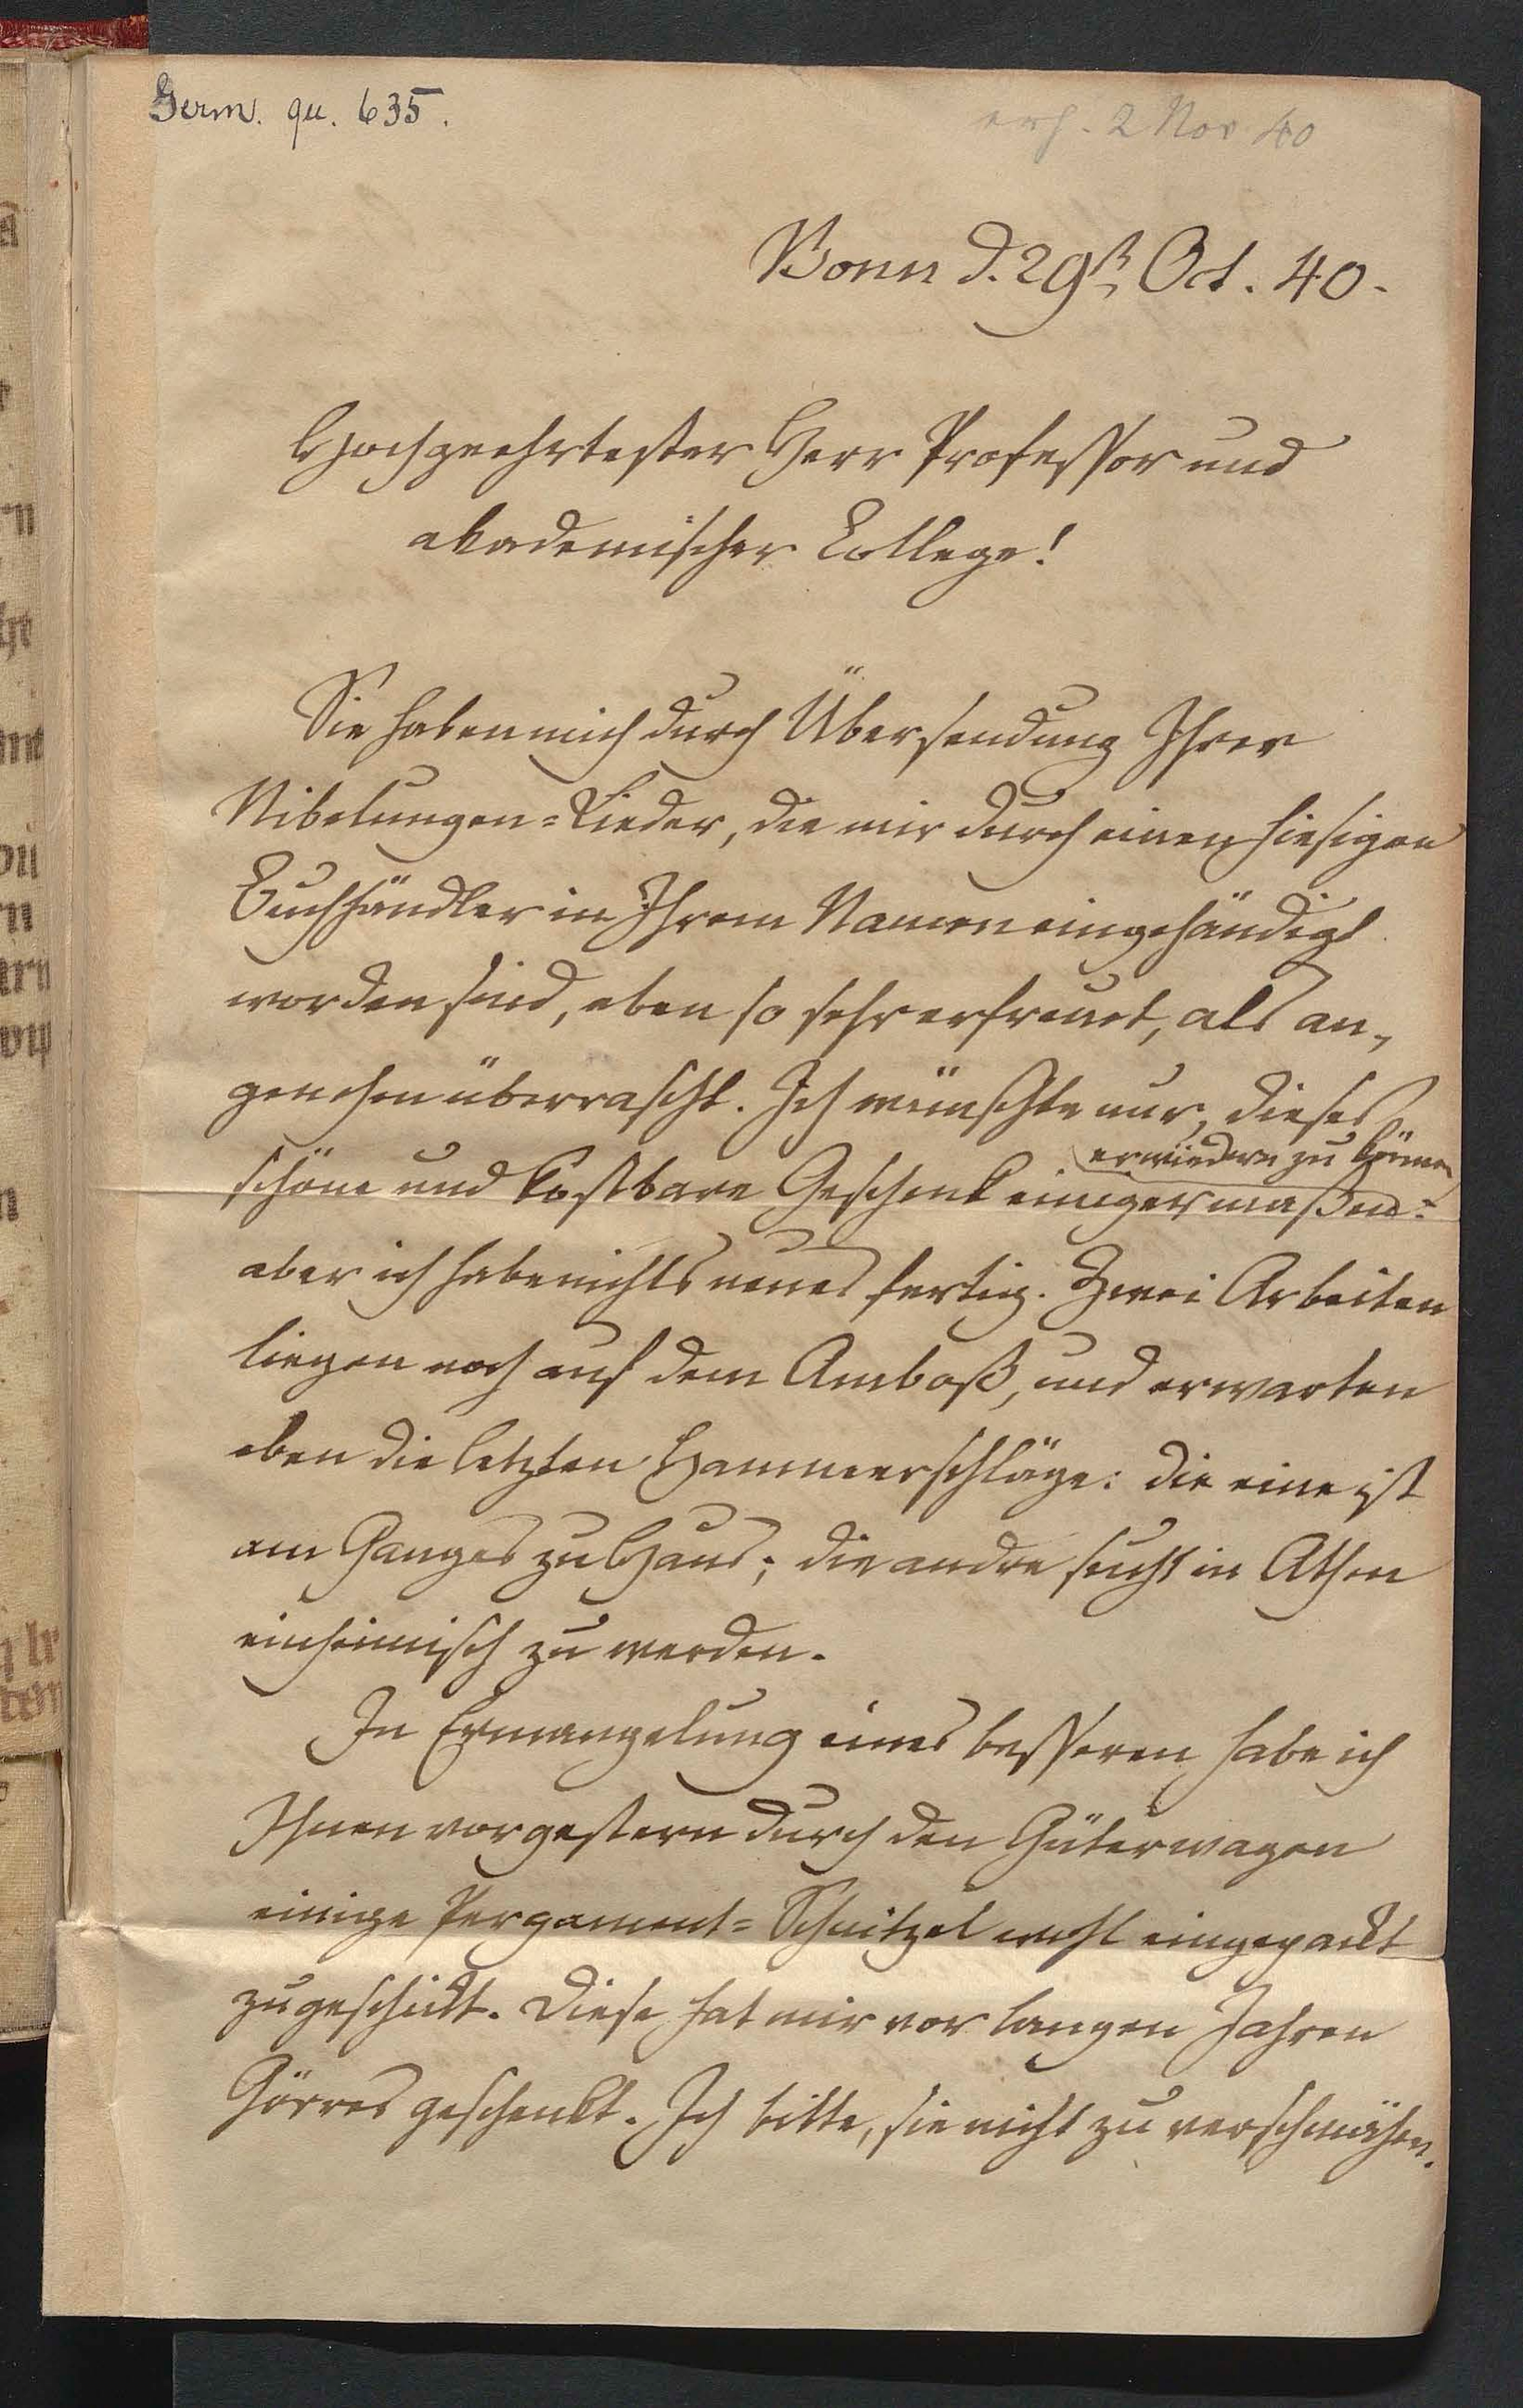 Germ. qu. 635.
erh. 2 Nov 40
Bonn d. 29st Oct. 40.
Hochgeehrtester Herr Professor und
akademischer College!
Sie haben mich durch Übersendung Ihrer
Nibelungen=Lieder, die mir durch einen hiesigen
Buchhändler in Ihrem Namen eingehändigt
worden sind, eben so sehr erfreuet, als an-
genehm überrascht. Ich wünschte nur, dieses
erwiedern zu können
schöne und kostbare Geschenk einigermaßen:
aber ich habe nichts neues fertig. Zwei Arbeiten
liegen noch auf dem Amboß, und erwarten
eben die letzten Hammerschläge: die eine ist
am Ganges zu Haus; die andre sucht in Athen
einheimisch zu werden.
In Ermangelung eines besseren habe ich
Ihnen vorgestern durch den Güterwagen
einige Pergament=Schnitzel wohl eingepackt
zugeschickt. Diese hat mir vor langen Jahren
Görres geschenkt. Ich bitte, sie nicht zu verschmähen.